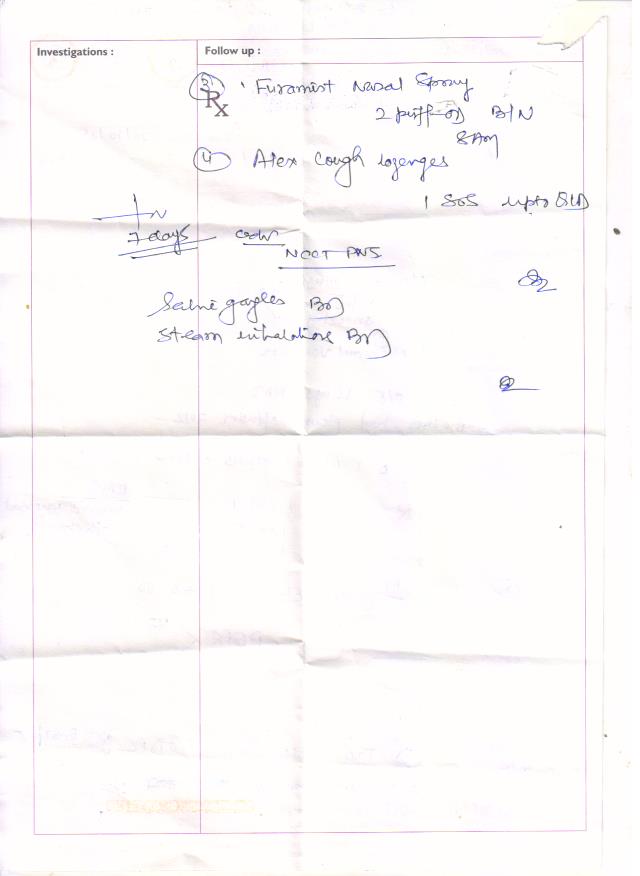 Investigations :
Follow up :
(3) Furamist Nasal Spray
Rx
2 puff-OD B/N
8AM
(4) Alex cough lozenges
1 SOS upto
7 days
NCCT PNS
Saline gargles BD
Steam inhalations BD